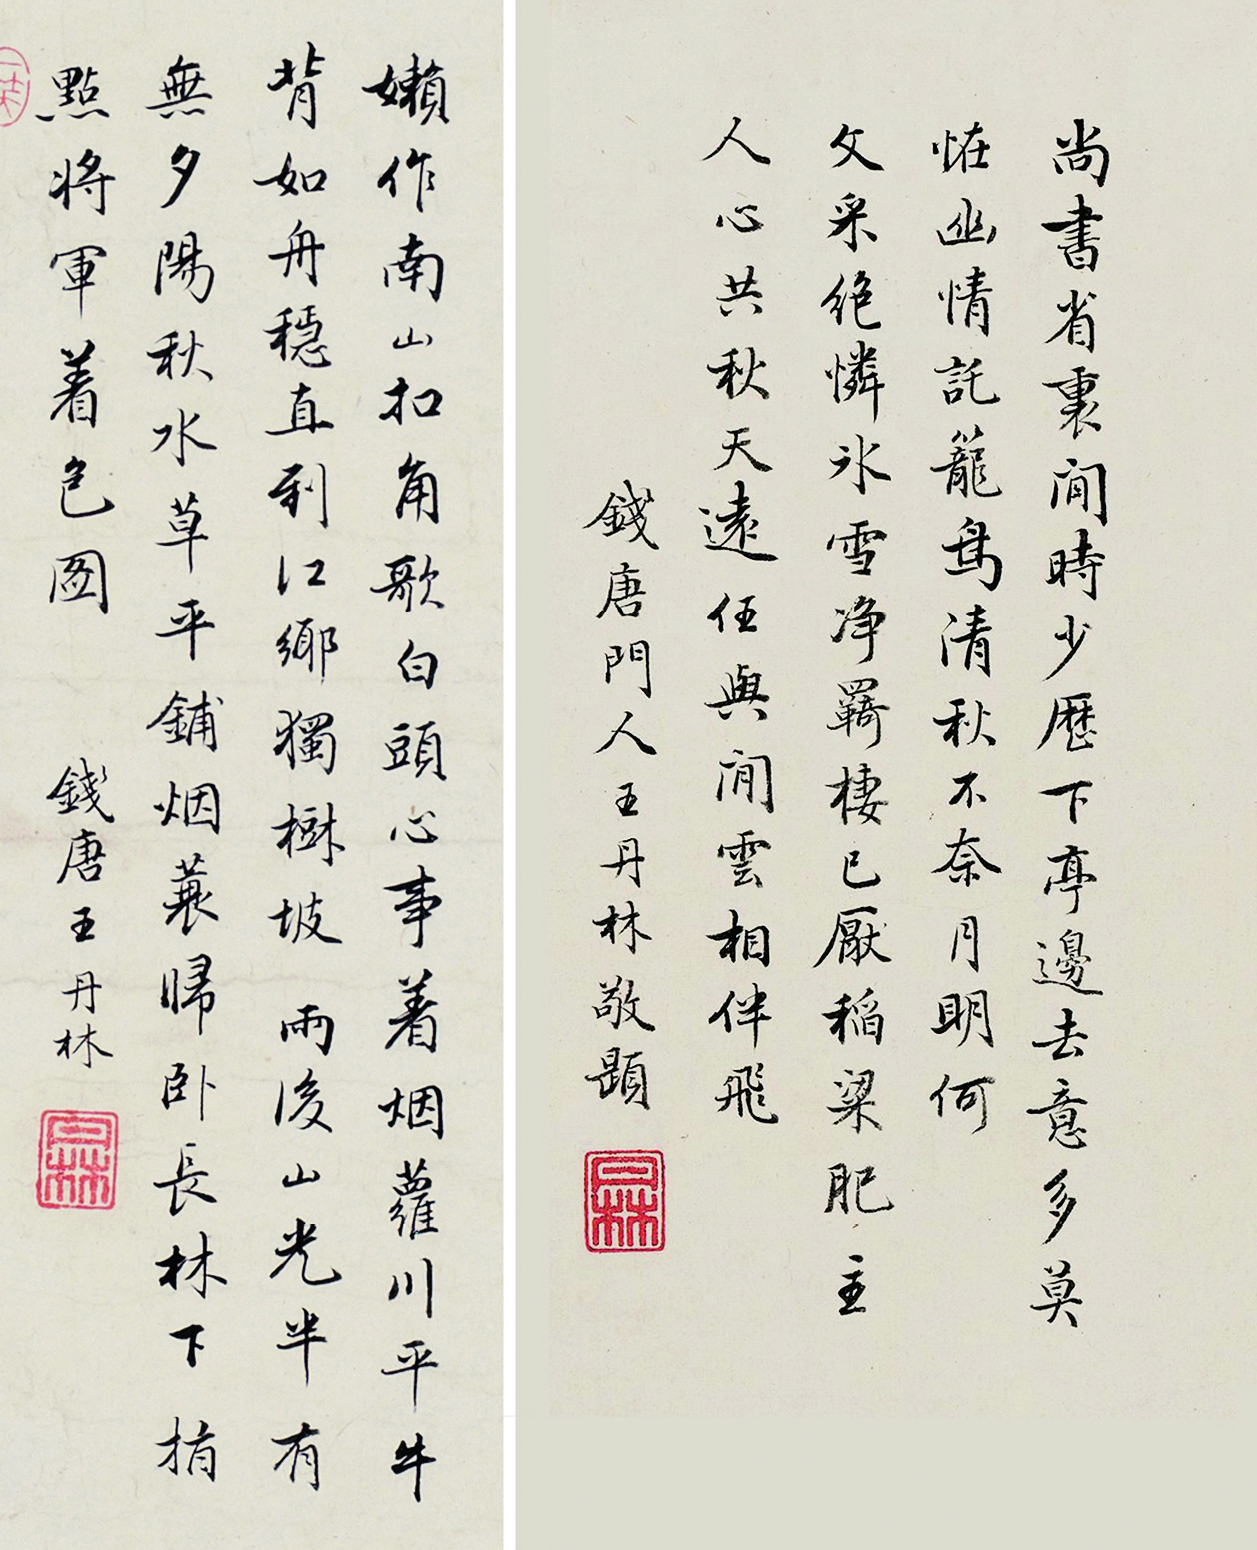 尚書省裏閒時少歷下亭邊去意多莫
恠幽情託籠鳥清秋不奈月明何
文采絶憐氷雪淨羇棲已厭稻粱肥主
人心共秋天遠任與閒雲相伴飛
錢唐門人王丹林敬題
丹林
嬾作南山扣角歌白頭心事着烟蘿川平牛
背如舟穩直到江鄉獨樹坡雨後山光半有
無夕陽秋水草平鋪烟蓑歸卧長林下指
點將軍着色圖
錢唐王丹林
丹林